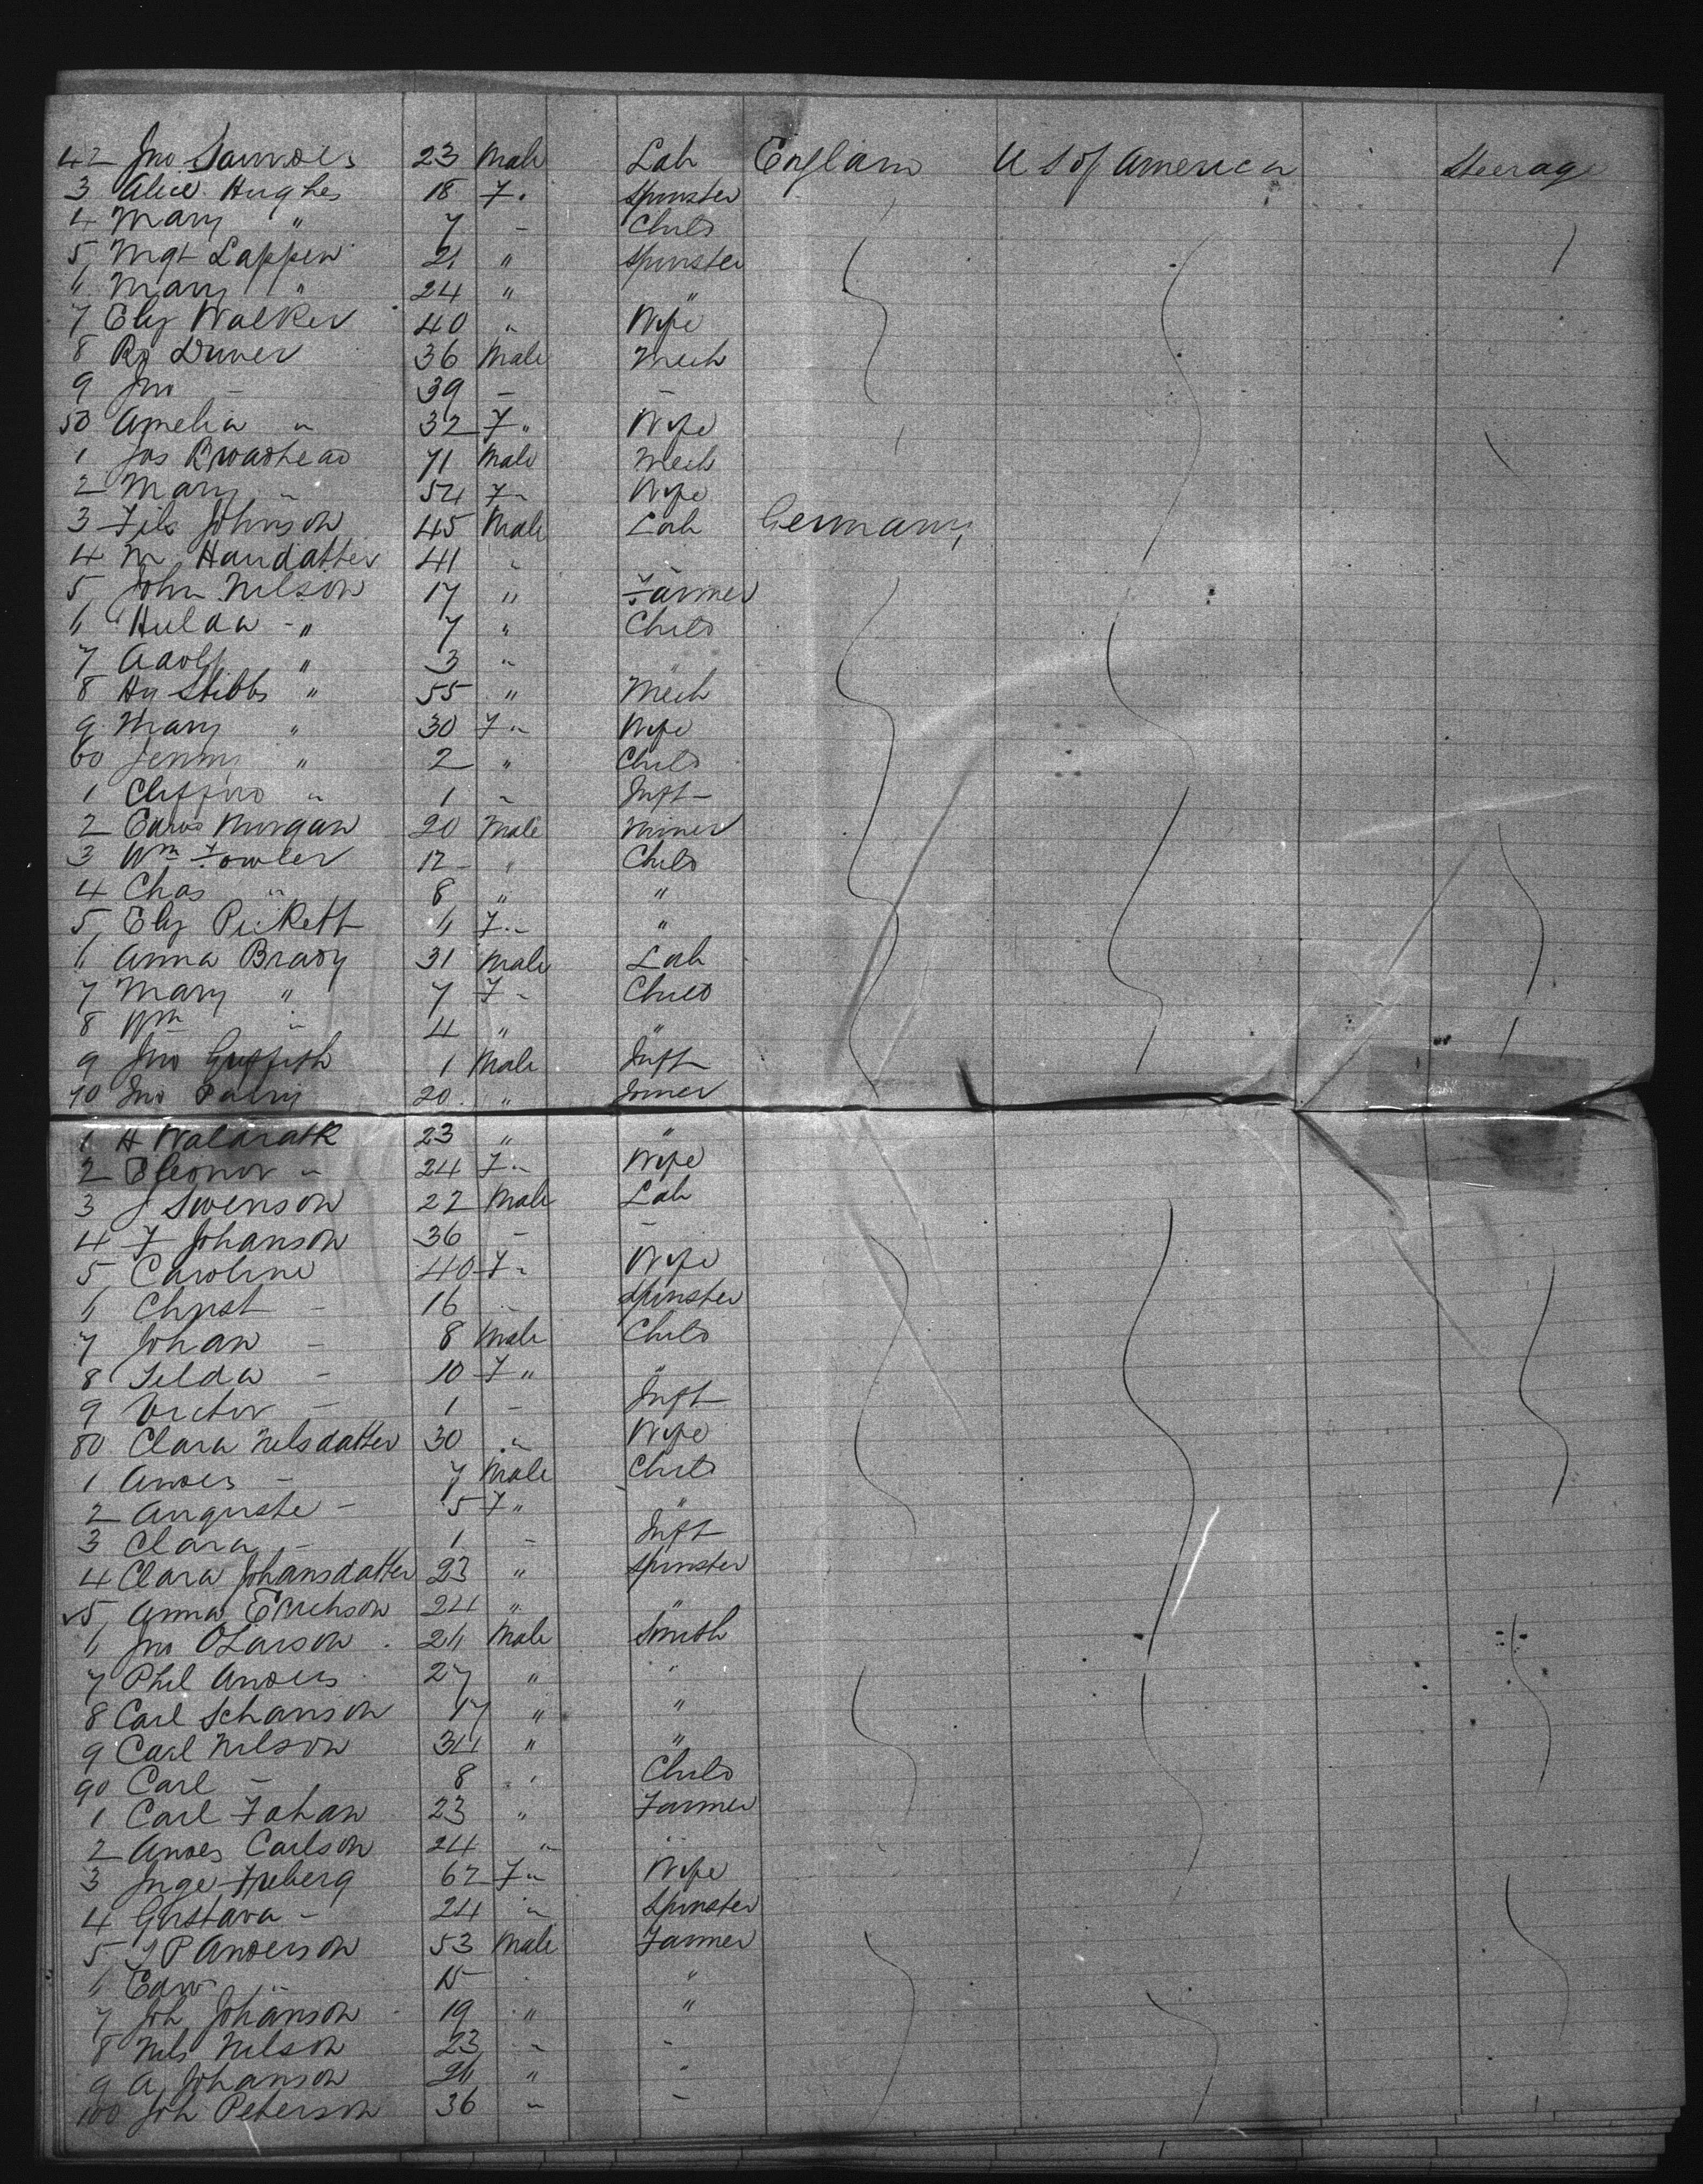 42 Jno Saunders 23 Male Lab England U S of America Steerage
3 Alice Hughes 18 F " Spinster
4 Mary " 7 - Child
5 Mgt Lappin 21 " Spinster
6 Mary " 24 " "
7 Elz Walker 40 " Wife
8 Rd Driver 36 Male Mech
9 Jno - 39 - -
50 Amelia " 32 F " Wife
1 Jos Broadhead 71 Male Mech
2 Mary " 54 F " Wife
3 Fils Johnson 45 Male Lab Germany
4 M Handatter 41 "
5 John Nilson 17 " Farmer
6 Hulda " 7 " Child
7 Adolf " 3 " "
8 Hy Stibbs " 55 " Mech
9 Mary " 30 F " Wife
60 Jenny " 2 " Child
1 Clifford " 1 " Inft
2 Edwd Morgan 20 Male Miner
3 Wm Fowler 12 " Child
4 Chas " 8 " "
5 Elz Pickett 6 F " "
6 Anna Brady 31 Male Lab
7 Mary " 7 F " Child
8 Wm " 4 " "
9 Jno Griffith 1 Male Inft
70 Jno Parry 20 " Joiner
1 H Walarath 23 " "
2 Eleonor " 24 F " Wife
3 J Swenson 22 Male Lab
4 F Johanson 36 - -
5 Caroline 40 F " Wife
6 Christ - 16 " Spinster
7 Johan - 8 Male Child
8 Selda - 10 F " "
9 Victor - 1 - Inft
80 Clara Nilsdatter 30 " Wife
1 Andes - 7 Male Child
2 Auguste - 5 F " "
3 Clara - 1 - Inft
4 Clara Johansdatter 23 " Spinster
5 Anna Erickson 24 " "
6 Jno O Larson 26 Male Smith
7 Phil Anders 27 " "
8 Carl Schanson 17 " "
9 Carl Nilson 34 " "
90 Carl - 8 " Child
1 Carl Johan 23 " Farmer
2 Andes Carlson 24 " "
3 Inge Friberg 62 F " Wife
4 Gustava - 24 " Spinster
5 J P Anderson 53 Male Farmer
6 Edw " 15 " "
7 Joh Johanson 19 " "
8 Nils Nilson 23 - -
9 A Johanson 26 " "
100 Joh Peterson 36 " -